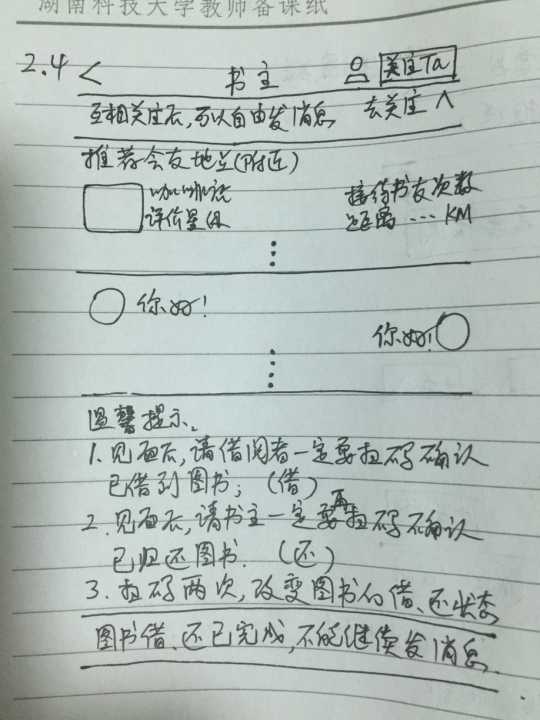 湖南科技大学教师备课纸
2.4 < 书主 关注Ta
互相关注后,可以自由发消息 去关注 ^
推荐会友地点(附近)
咖啡店 接待书友次数
评价星级 距离 ... KM
你好!
你好!
温馨提示。
1. 见面后,请借阅者一定要扫码确认
已借到图书;(借)
2. 见面后,请书主一定要再扫码确认
已归还图书.(还)
3. 扫码两次,改变图书的借、还状态
图书借、还已完成,不能继续发消息.